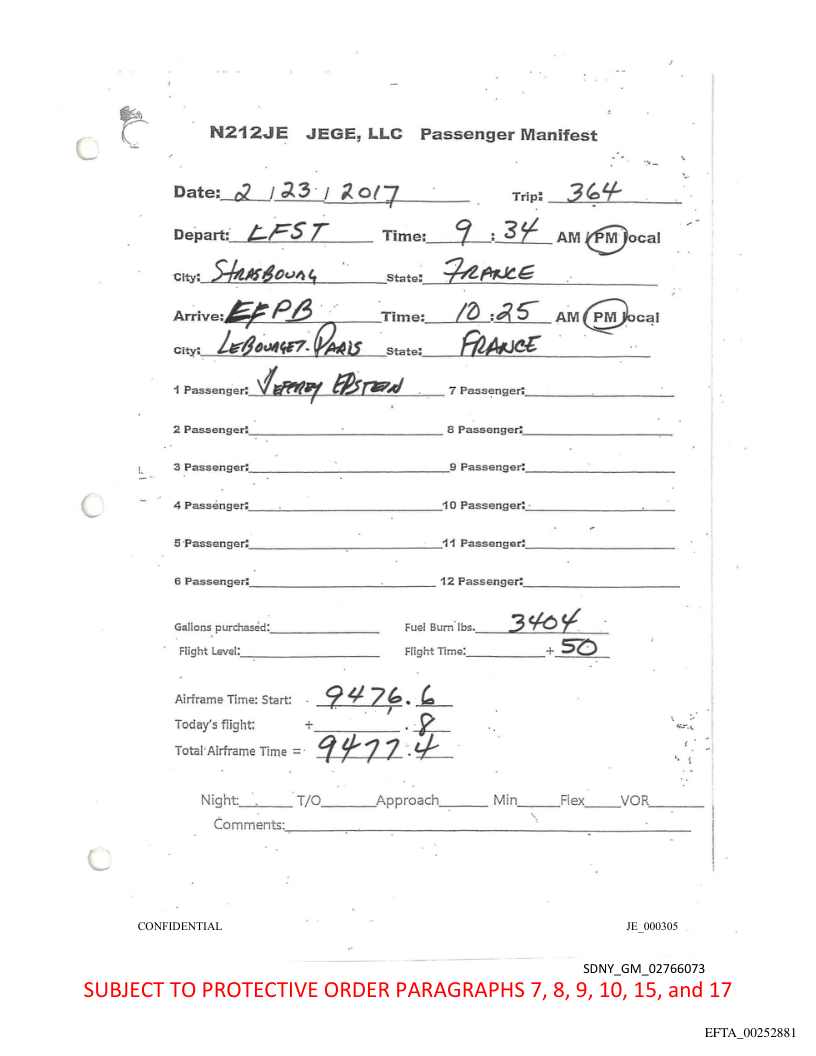 N212JE JEGE, LLC Passenger Manifest
Date: 2 / 23 / 2017 Trip: 364
Depart: LFST Time: 9 : 34 AM / PM local
City: STRASBOURG State: FRANCE
Arrive: EFPB Time: 10 : 25 AM / PM local
City: LEBOURGET-PARIS State: FRANCE
1 Passenger: JEFFREY EPSTEIN 7 Passenger:
2 Passenger: 8 Passenger:
3 Passenger: 9 Passenger:
4 Passenger: 10 Passenger:
5 Passenger: 11 Passenger:
6 Passenger: 12 Passenger:
Gallons purchased: Fuel Burn lbs. 3404
Flight Level: Flight Time: + 50
Airframe Time: Start: 9476.6
Today's flight: + .8
Total Airframe Time = 9477.4
Night: T/O Approach Min Flex VOR
Comments:
CONFIDENTIAL JE_000305
SDNY_GM_02766073
SUBJECT TO PROTECTIVE ORDER PARAGRAPHS 7, 8, 9, 10, 15, and 17
EFTA_00252881